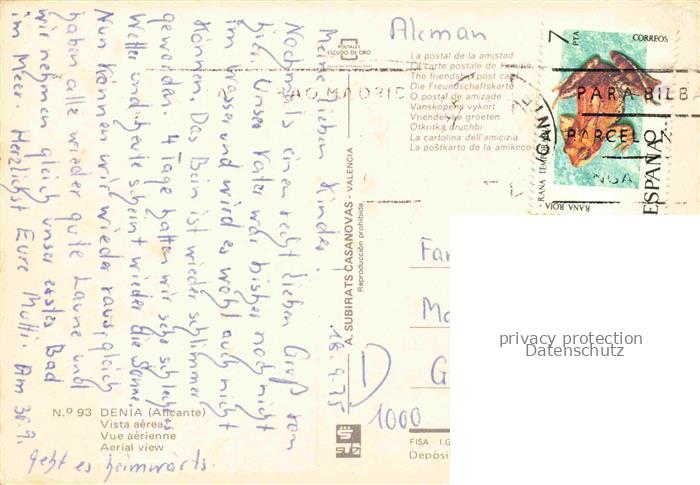 Aleman
POSTALES
ESCUDO DE ORO
La postal de la amistad
La carte postale de l'amitié
The friendship post card
Die Freundschaftskarte
O postal de amizade
Vanskopens vykort
Vriendelijke groeten
Otkritka druchbi
La cartolina dell'amicizia
La poŝtkarto de la amikeco
7
PTA
CORREOS
RANA ROJA
RANA TEMPORARIA
ESPAÑA
PARA BILBA
PARCEL
MADRID
18.9.75
Meine lieben Kinder!
Nochmals einen recht lieben Gruß von
hier. Unser Vater war bisher noch nicht
im Wasser und wird es wohl auch nicht
können. Das Bein ist wieder schlimmer
geworden. 4 Tage hatten wir sehr schlechtes
Wetter und heute scheint wieder die Sonne.
Nun können wir wieder raus, gleich
haben alle wieder gute Laune und
wir nehmen gleich unser erstes Bad
im Meer. Herzlichst Eure Mutti. Am 30.9.
geht es heimwärts.
A. SUBIRATS CASANOVAS - VALENCIA
Reproducción prohibida
D
1000
N.º 93 DENIA (Alicante)
Vista aérea
Vue aérienne
Aerial view
FISA - I.G
Depósi
privacy protection
Datenschutz